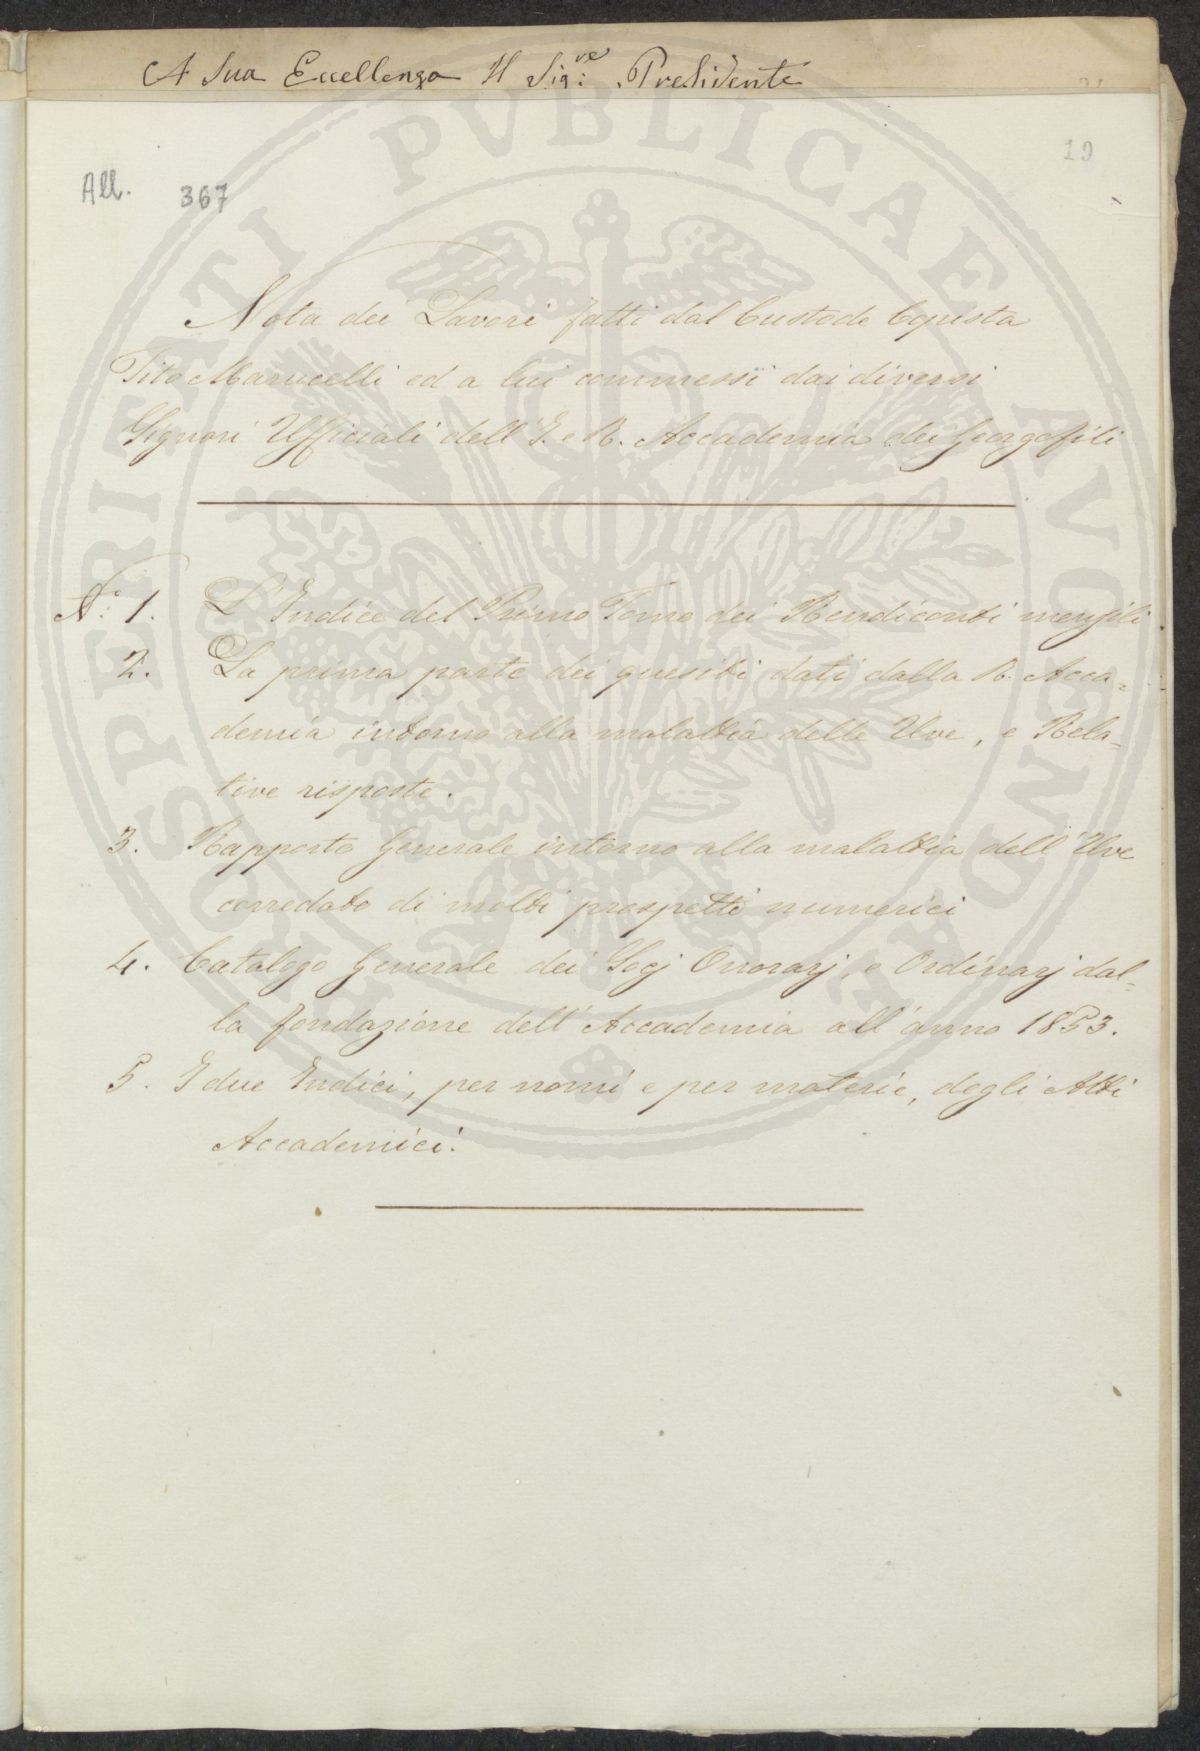 A Sua Eccellenza Il Sig:re Presidente
19
All. 367
Nota dei Lavori fatti dal Custode Copista
Tito Marucelli ed a lui commessi dai diversi
Signori Ufficiali dell'I. e R. Accademia dei Georgofili
N.° 1. L'Indice del Primo Tomo dei Rendiconti mensili
2. La prima parte dei quesiti dati dalla R. Acca=
demia intorno alla malattia delle Uve, e Rela=
tive risposte.
3. Rapporto Generale intorno alla malattia dell'Uve
corredato di molti prospetti numerici
4. Catalogo Generale dei Socj Onorarj, e Ordinarj dal=
la fondazione dell'Accademia all'anno 1853.
5. I due Indici, per nomi e per materie, degli Atti
Accademici.
PROSPERITATI PVBLICAE AVGENDAE